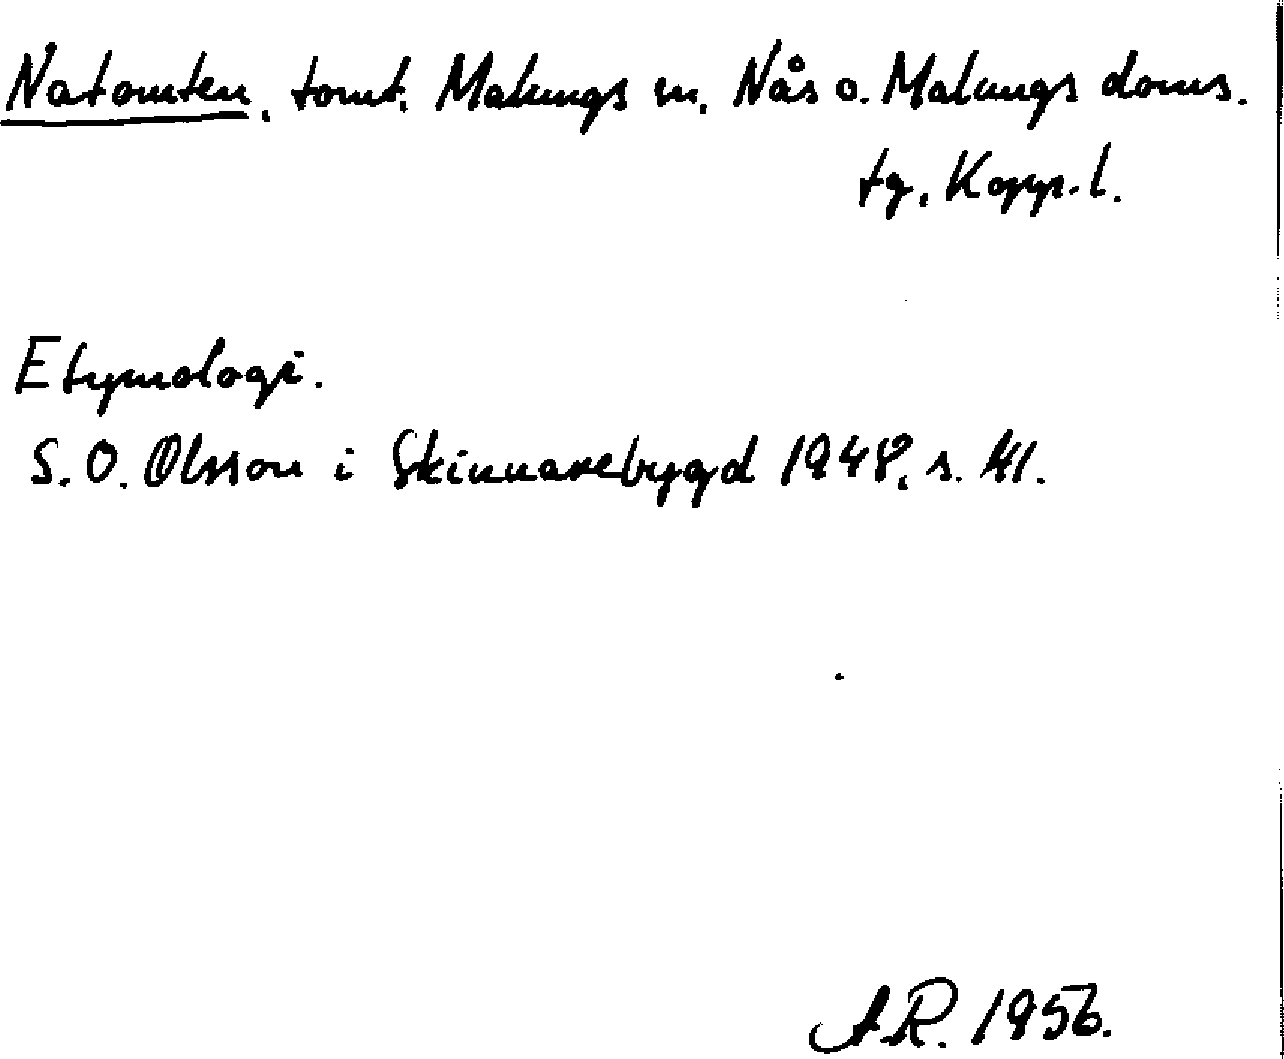 Natomten, tomt. Malungs sn. Nås o. Malungs doms.
tg. Kopp. l.
Etymologi.
S. O. Olsson i Skinnarebygd 1948, s. 41.
A.R. 1956.